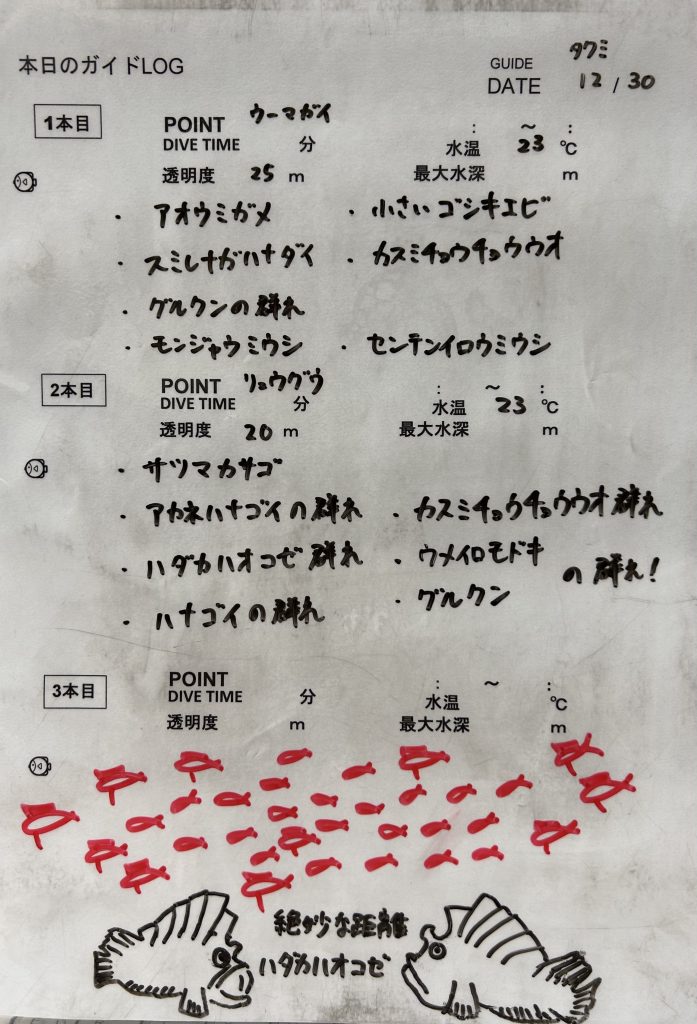 本日のガイドLOG
GUIDE タクミ
DATE 12 / 30
1本目 POINT ウーマガイ : ～ :
DIVE TIME 分 水温 23 ℃
透明度 25 m 最大水深 m
・ アオウミガメ ・ 小さいゴシキエビ
・ スミレナガハナダイ ・ カスミチョウチョウウオ
・ グルクンの群れ
・ モンジャウミウシ ・ センテンイロウミウシ
2本目 POINT リュウグウ : ～ :
DIVE TIME 分 水温 23 ℃
透明度 20 m 最大水深 m
・ サツマカサゴ
・ アカネハナゴイの群れ ・ カスミチョウチョウウオ群れ
・ ハダカハオコゼ群れ ・ ウメイロモドキ
・ ハナゴイの群れ ・ グルクン の群れ!
3本目 POINT : ～ :
DIVE TIME 分 水温 ℃
透明度 m 最大水深 m
絶妙な距離
ハダカハオコゼ